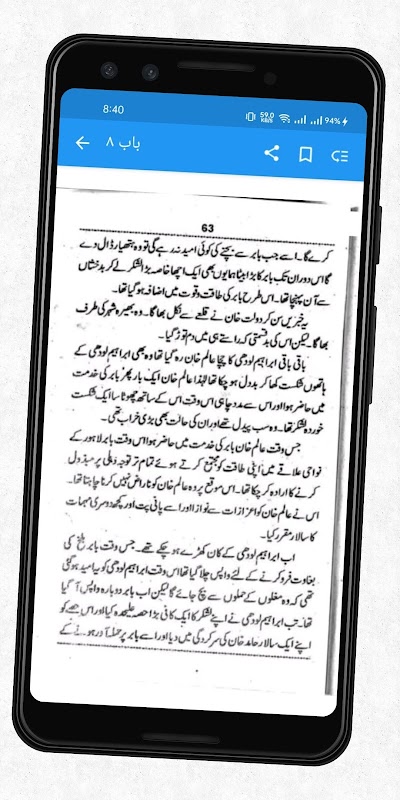 8:40
59.0 KB/S 94%
باب ۸
63
کرے گا۔ اسے جب بابر سے بچنے کی کوئی امید نہ رہے گی تو وہ ہتھیار ڈال دے
گا اس دوران تک بابر کا بڑا بیٹا ہمایوں بھی ایک اچھا خاصہ بڑا لشکر لے کر بدخشاں
سے آن پہنچا تھا۔ اس طرح بابر کی طاقت و قوت میں اضافہ ہو گیا تھا۔
یہ خبریں سن کر دولت خان نے قلعے سے نکل بھاگا۔ وہ بھیرہ شہر کی طرف
بھاگا۔ لیکن اس کی بدقسمتی کہ راستے ہی میں دم توڑ گیا۔
باقی ابراہیم لودھی کا چچا عالم خان رہ گیا تھا وہ بھی ابراہیم لودھی کے
ہاتھوں شکست کھا کر بددل ہو چکا تھا لہٰذا عالم خان ایک بار پھر بابر کی خدمت
میں حاضر ہوا اور اس سے مدد چاہی اس وقت اس کے ساتھ چھوٹا سا ایک شکست
خوردہ لشکر تھا۔ وہ سب پیدل تھے اور ان کی حالت بھی بڑی خراب تھی۔
جس وقت عالم خان بابر کی خدمت میں حاضر ہوا اس وقت بابر لاہور کے
نواحی علاقے میں اپنی طاقت کو مجتمع کرتے ہوئے تمام تر توجہ دہلی پر مبذول
کرنے کا ارادہ کر چکا تھا۔ اس موقع پر وہ عالم خان کو ناراض نہیں کرنا چاہتا تھا۔
اس نے عالم خان کو اعزازات سے نوازا اور اسے پانی پت اور کچھ دوسری مہمات
کا سالار مقرر کیا۔
اب ابراہیم لودھی کے کان کھڑے ہو چکے تھے۔ جس وقت بابر بلخ کی
بغاوت فرو کرنے کے لئے واپس چلا گیا تھا اس وقت ابراہیم لودھی کو یہ امید ہو گئی
تھی کہ وہ مغلوں کے حملوں سے بچ جائے گا لیکن اب بابر دوبارہ واپس آ گیا
تھا۔ تب ابراہیم لودھی نے اپنے لشکر کا ایک کافی بڑا حصہ علیحدہ کیا اور اس حصے کو
اپنے ایک سالار حامد خان کی سرکردگی میں دیا اور اسے بابر پر حملہ آور ہونے کے